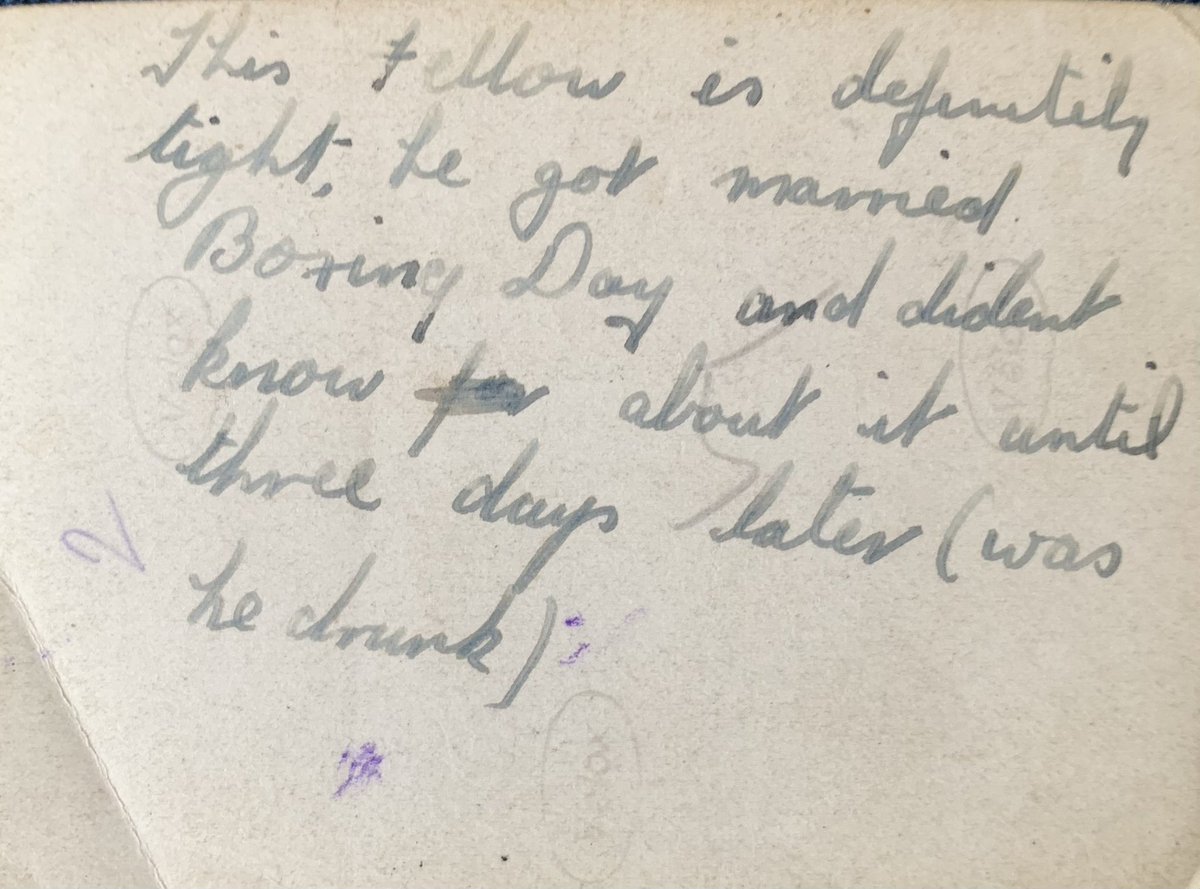 This Fellow is definitily
tight, he got married
Boxing Day and dident
know about it until
three days later (was
he drunk)
2
VELOX
VELOX
VELOX